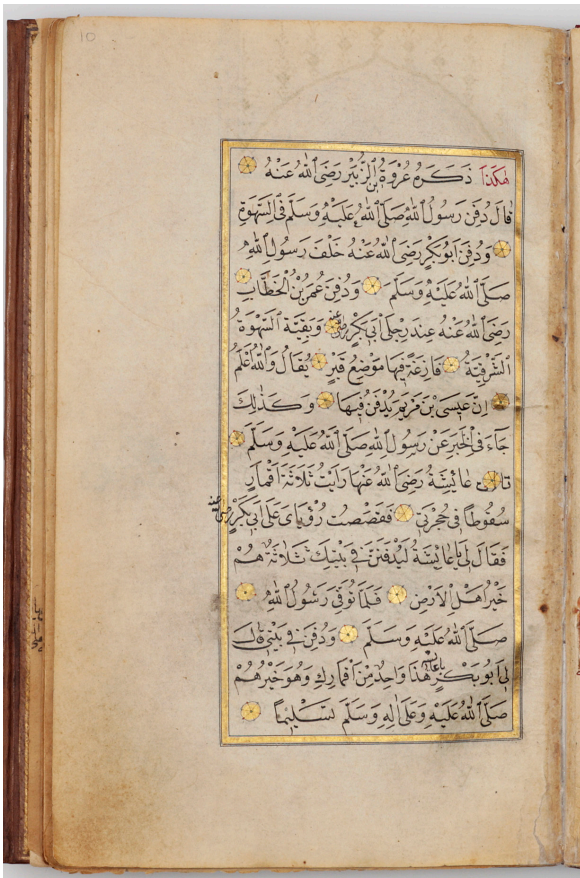 10
هٰكَذَا ذَكَرَهُ عُرْوَةُ بْنُ الزُّبَيْرِ رَضِيَ اللّٰهُ عَنْهُ
قَالَ دُفِنَ رَسُولُ اللّٰهِ صَلَّى اللّٰهُ عَلَيْهِ وَسَلَّمَ فِي السَّهْوَةِ
وَدُفِنَ اَبُو بَكْرٍ رَضِيَ اللّٰهُ عَنْهُ خَلْفَ رَسُولِ اللّٰهِ
صَلَّى اللّٰهُ عَلَيْهِ وَسَلَّمَ وَدُفِنَ عُمَرُ بْنُ الْخَطَّابِ
رَضِيَ اللّٰهُ عَنْهُ عِنْدَ رِجْلَيْ اَبِي بَكْرٍ رضي عنه وَبَقِيَّةُ السَّهْوَةُ
الشَّرْقِيَّةُ فَارِغَةٌ فِيهَا مَوْضِعُ قَبْرٍ يُقَالُ وَاللّٰهُ اَعْلَمُ
اِنَّ عِيسَى بْنَ مَرْيَمَ يُدْفَنُ فِيهَا وَكَذٰلِكَ
جَاءَ فِي الْخَبَرِ عَنْ رَسُولِ اللّٰهِ صَلَّى اللّٰهُ عَلَيْهِ وَسَلَّمَ
قالت عَائِشَةُ رَضِيَ اللّٰهُ عَنْهَا رَاَيْتُ ثَلَاثَةَ اَقْمَارٍ
سُقُوطًا فِي حُجْرَتِي فَقَصَصْتُ رُؤْيَايَ عَلَى اَبِي بَكْرٍ رضي عنه
فَقَالَ لِي يَا عَائِشَةُ لَيُدْفَنَنَّ فِي بَيْتِكِ ثَلَاثَةٌ هُمْ
خَيْرُ اَهْلِ الْاَرْضِ فَلَمَّا تُوُفِّيَ رَسُولُ اللّٰهِ
صَلَّى اللّٰهُ عَلَيْهِ وَسَلَّمَ وَدُفِنَ فِي بَيْتِي قَالَ
لِي اَبُو بَكْرٍ يا عائشة هٰذَا وَاحِدٌ مِنْ اَقْمَارِكِ وَهُوَ خَيْرُهُمْ
صَلَّى اللّٰهُ عَلَيْهِ وَعَلَى اٰلِهِ وَسَلَّمَ تَسْلِيمًا